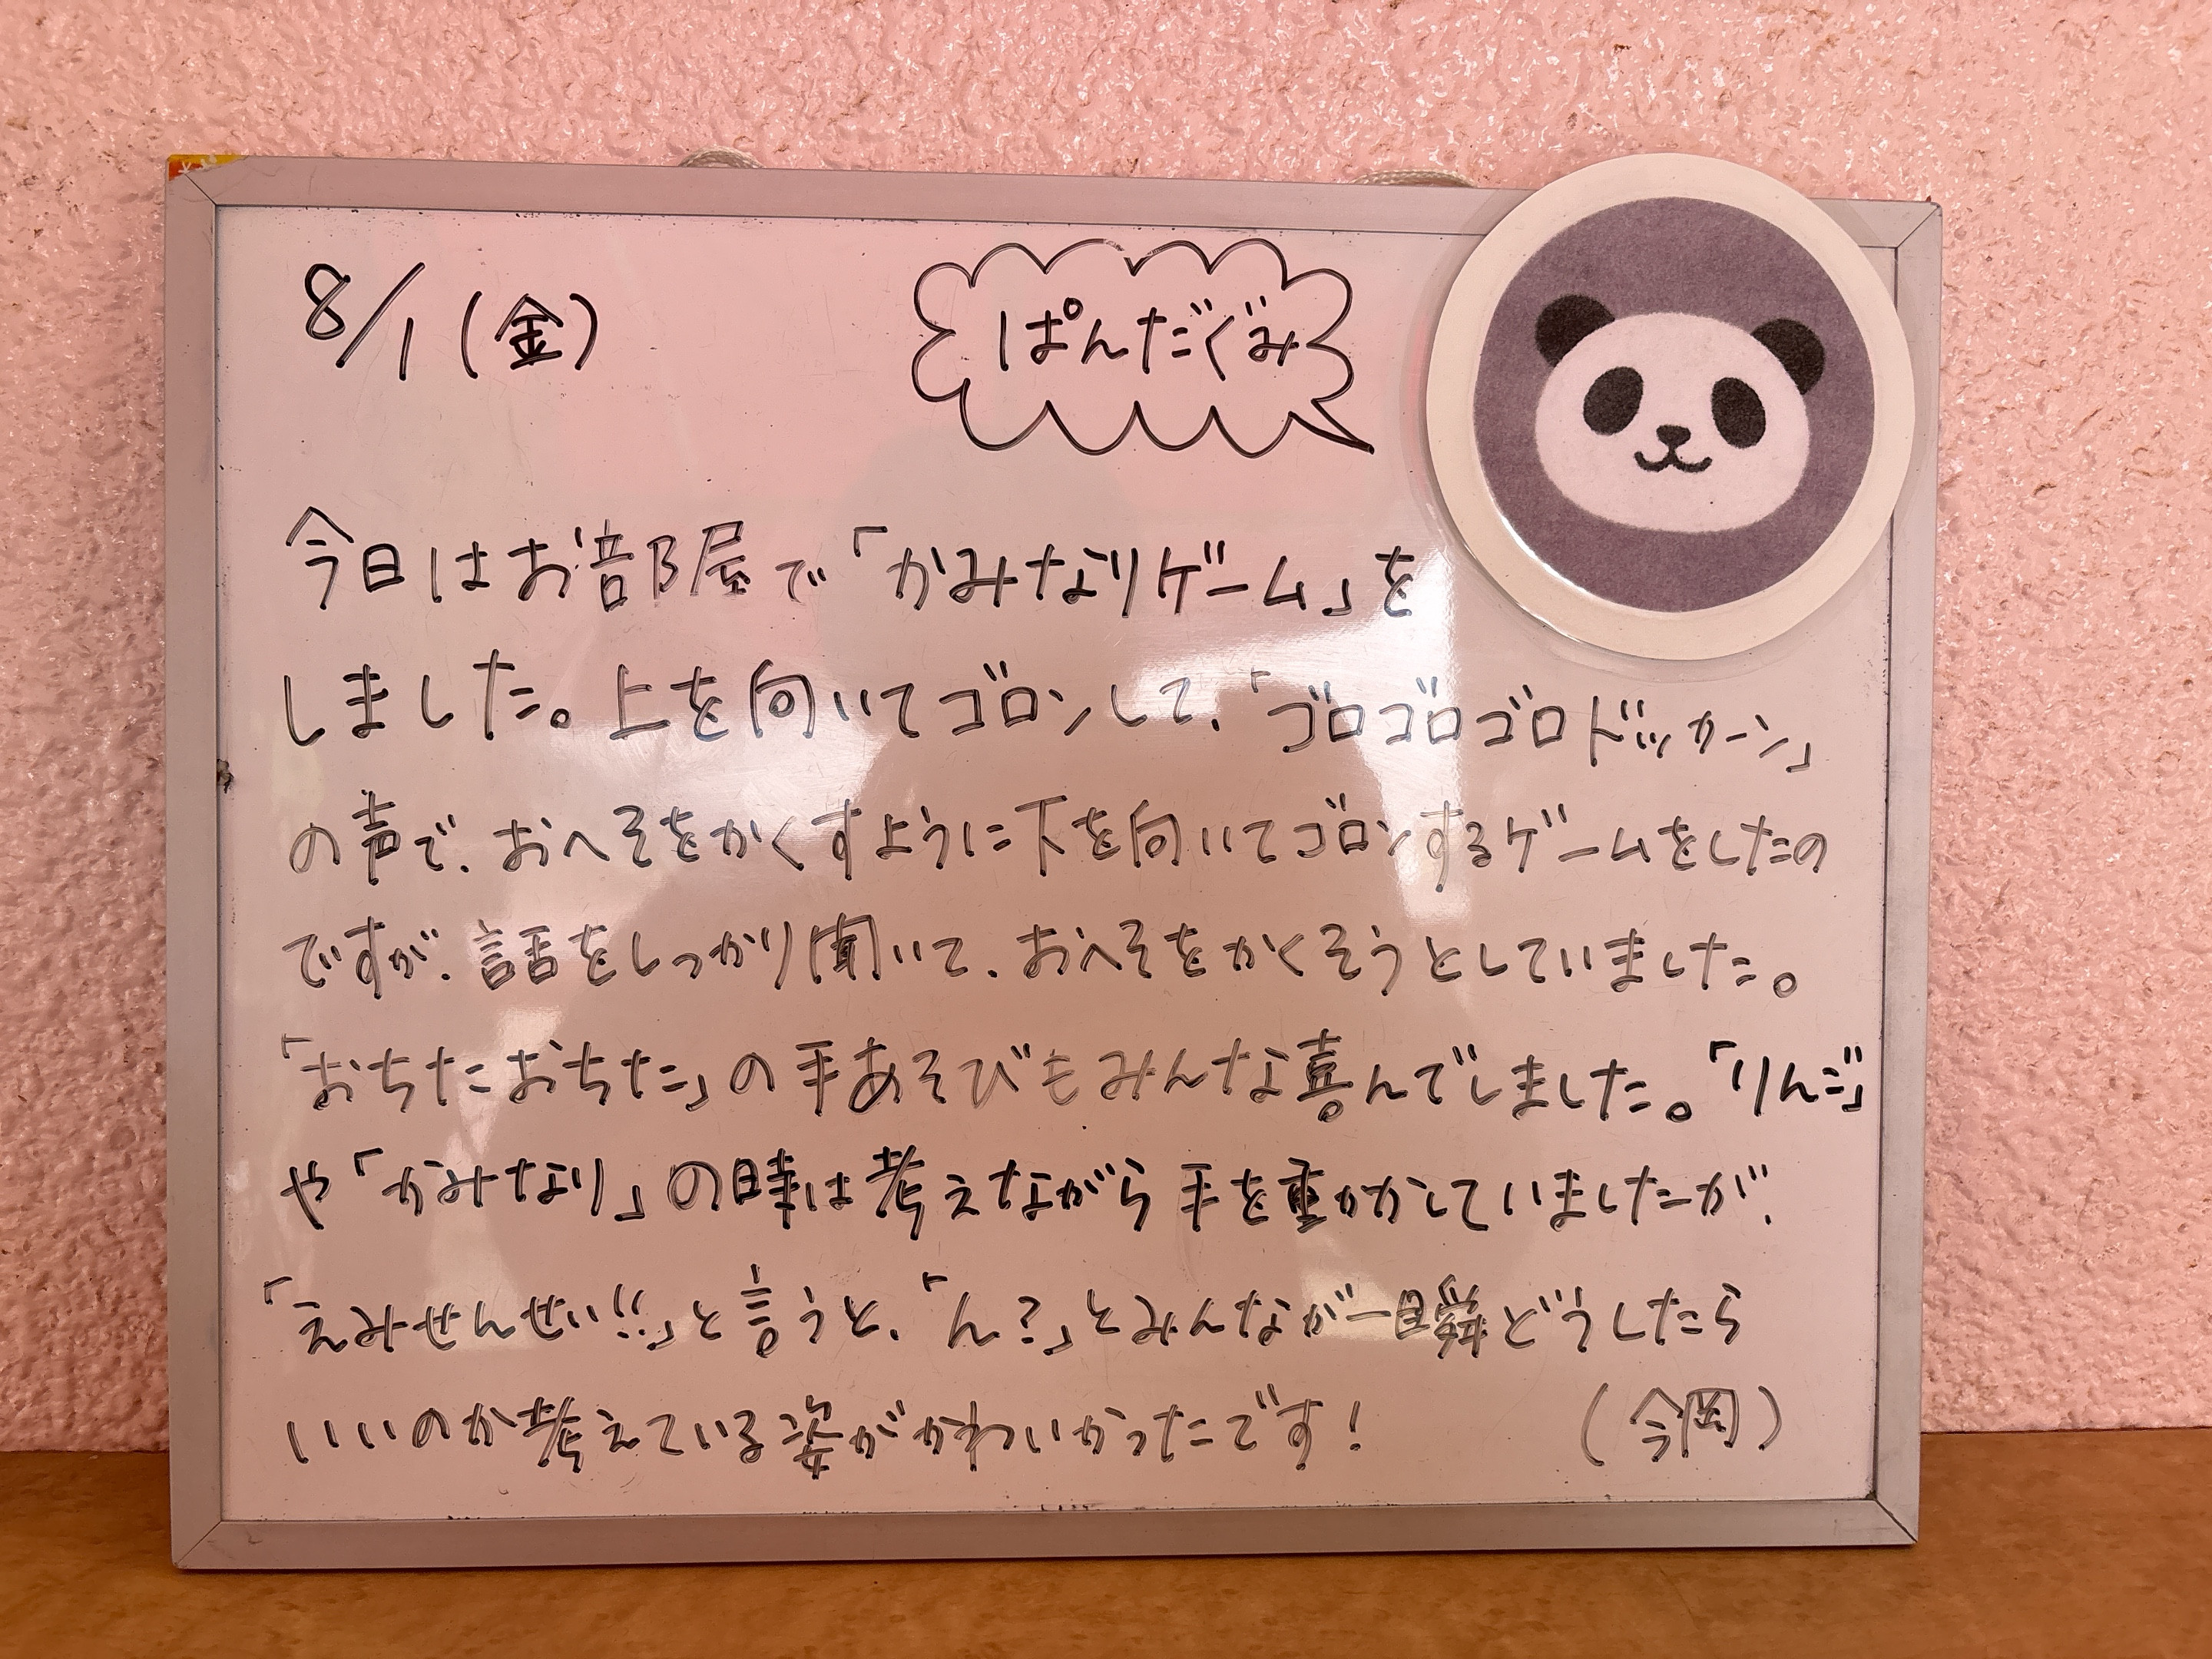 8/1(金)
ぱんだぐみ
今日はお部屋で「かみなりゲーム」を
しました。上を向いてゴロンして、「ゴロゴロゴロドッカーン」
の声で、おへそをかくすように下を向いてゴロンするゲームをしたの
ですが、話をしっかり聞いて、おへそをかくそうとしていました。
「おちたおちた」の手あそびもみんな喜んでしました。「りんご」
や「かみなり」の時は考えながら手を動かしていましたが、
「えみせんせい!!」と言うと、「ん?」とみんなが一瞬どうしたら
いいのか考えている姿がかわいかったです!
(今岡)